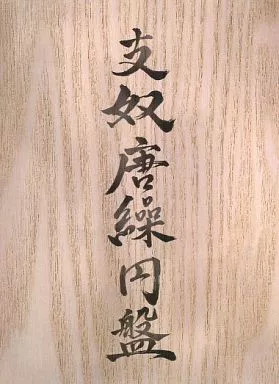 支奴唐繰円盤